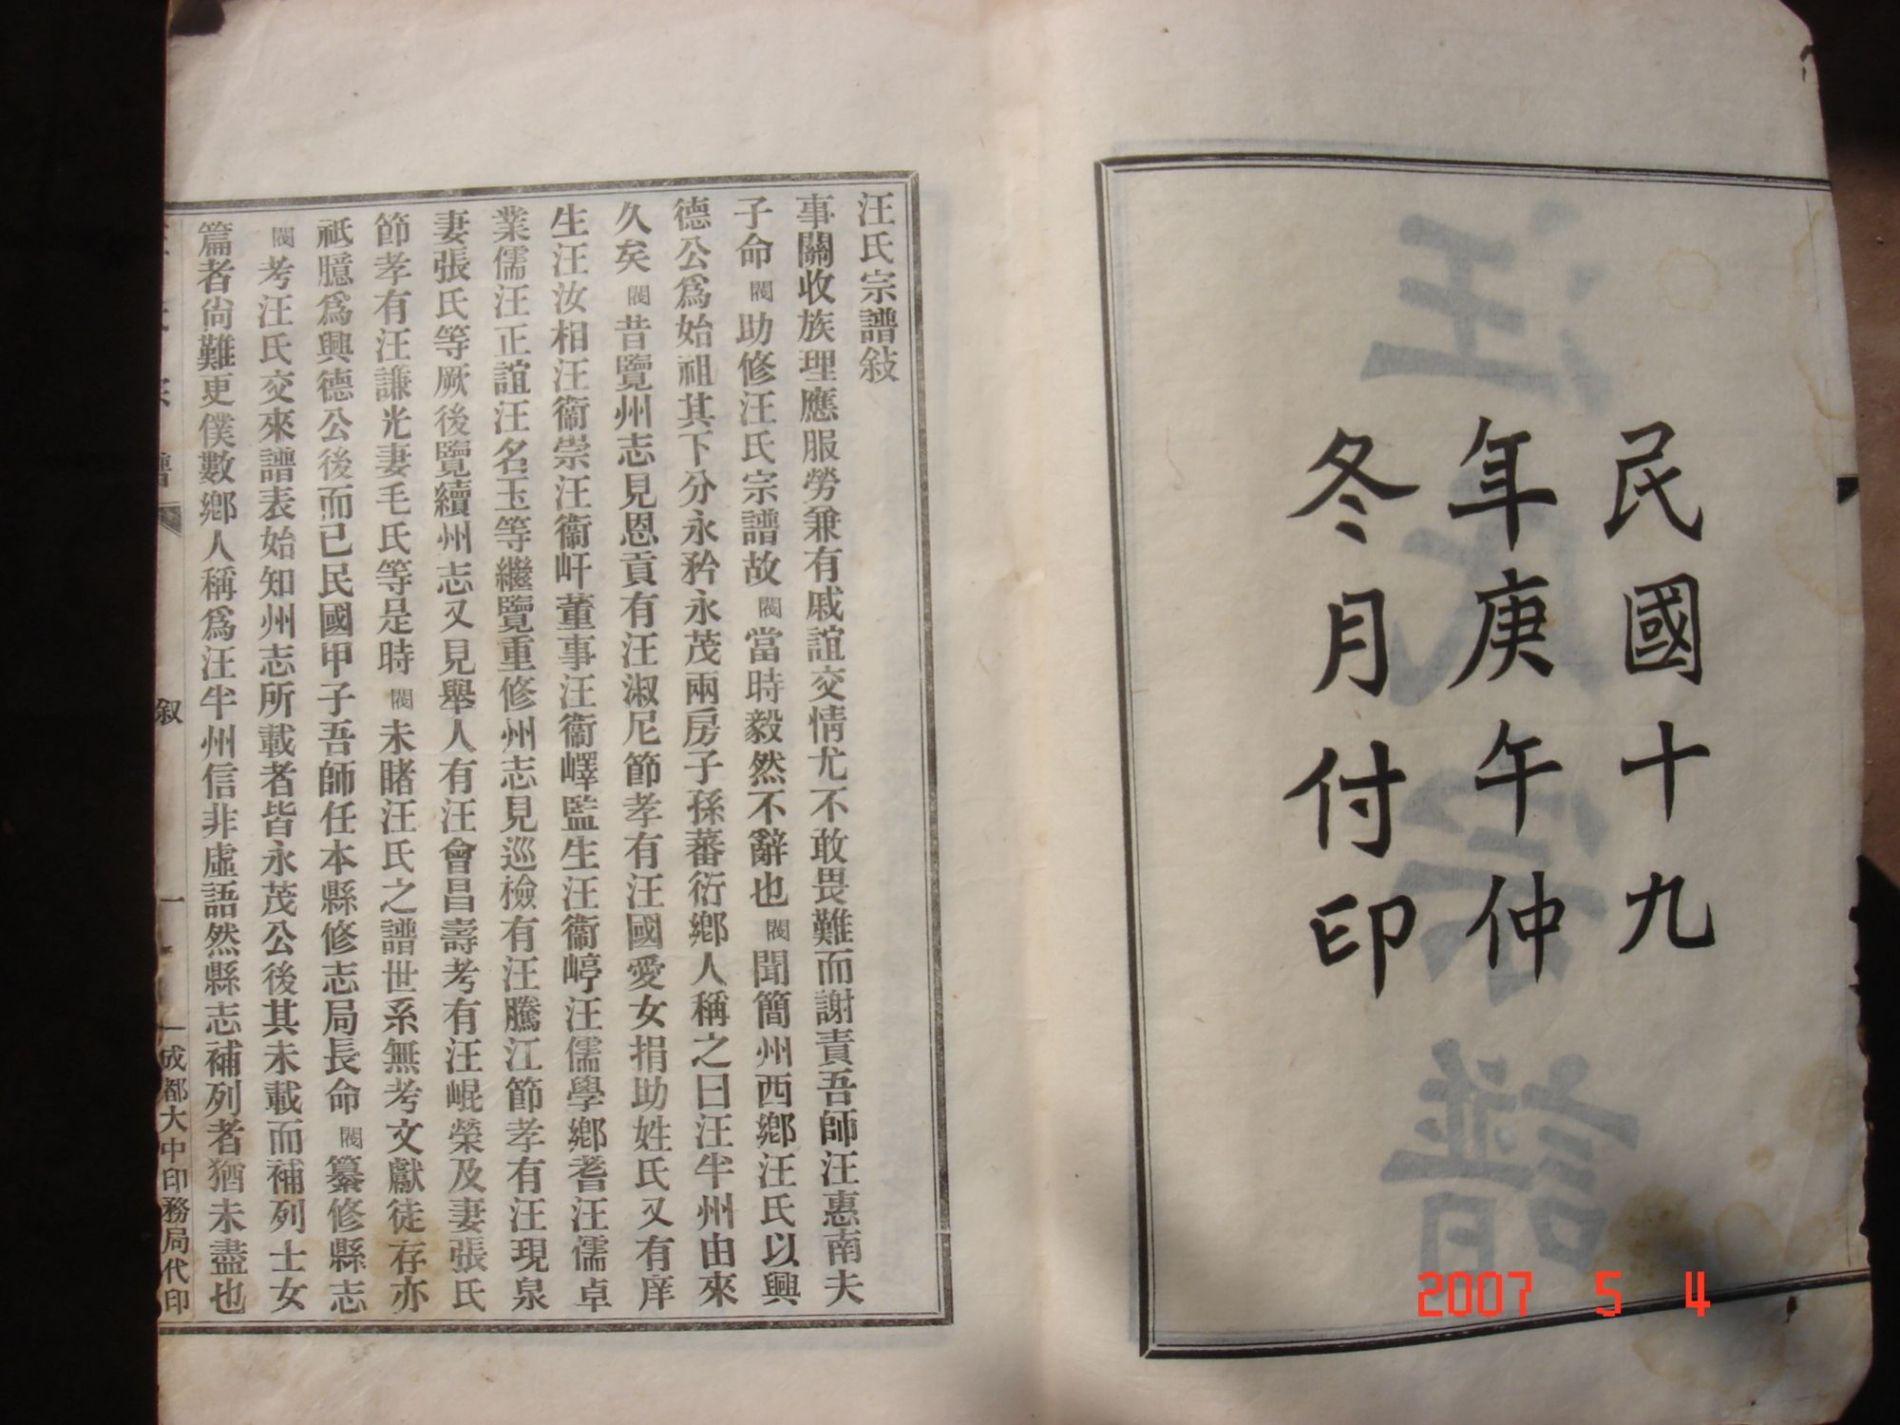 民國十九
年庚午仲
冬月付印
汪氏宗譜
2007 5 4
汪氏宗譜敍
事關收族理應服勞兼有戚誼交情尤不敢畏難而謝責吾師汪惠南夫
子命閣助修汪氏宗譜故閣當時毅然不辭也閣聞簡州西鄉汪氏以興
德公爲始祖其下分永矜永茂兩房子孫蕃衍鄉人稱之曰汪半州由來
久矣閣昔覽州志見恩貢有汪淑尼節孝有汪國愛女捐助姓氏又有庠
生汪汝相汪衞崇汪衞屽董事汪衞嶧監生汪衞崞汪儒學鄉耆汪儒卓
業儒汪正誼汪名玉等繼覽重修州志見巡檢有汪騰江節孝有汪現泉
妻張氏等厥後覽續州志又見舉人有汪會昌壽考有汪崐榮及妻張氏
節孝有汪謙光妻毛氏等是時閣未睹汪氏之譜世系無考文獻徒存亦
祇臆爲興德公後而已民國甲子吾師任本縣修志局長命閣纂修縣志
閣考汪氏交來譜表始知州志所載者皆永茂公後其未載而補列士女
篇者尙難更僕數鄉人稱爲汪半州信非虛語然縣志補列者猶未盡也
譜
叙
一
成都大中印務局代印